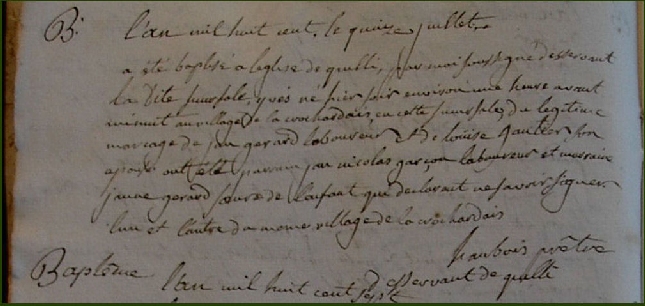 B. l'an mil huit cent, le quinze juillet
a été baptisé a leglise de quilli, par moi soussigné desservant
la dite succursale, yves né hier soir environ une heure avant
minuit au village de la crochardais, en cette succursale, du legitime
mariage de jan gerard laboureur et de louise gautier son
epouse ont été parrain jan nicolas garçon laboureur et marraine
janne gerard soeure de l'enfant qui declarent ne savoir signer
l'un et l'autre du meme village de la crochardais
haubois prêtre
desservant de quilli
Baptême l'an mil huit cent sept